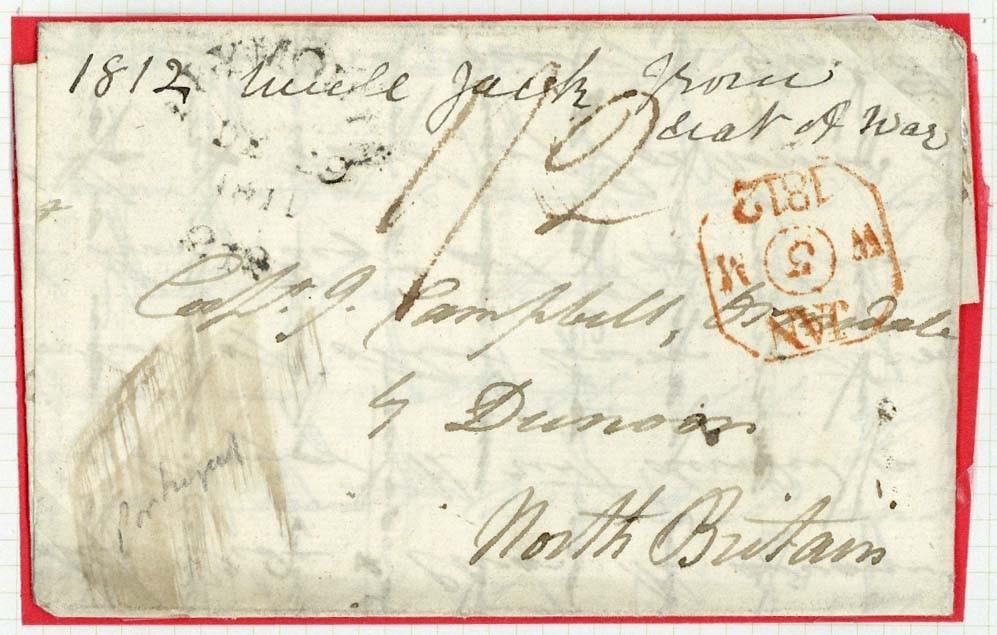 1812 Uncle Jack from
Seat of War
1/2
1811
1812
W 3 M
JAN
Capt. J. Campbell,
by Dunoon
North Britain
Portugal